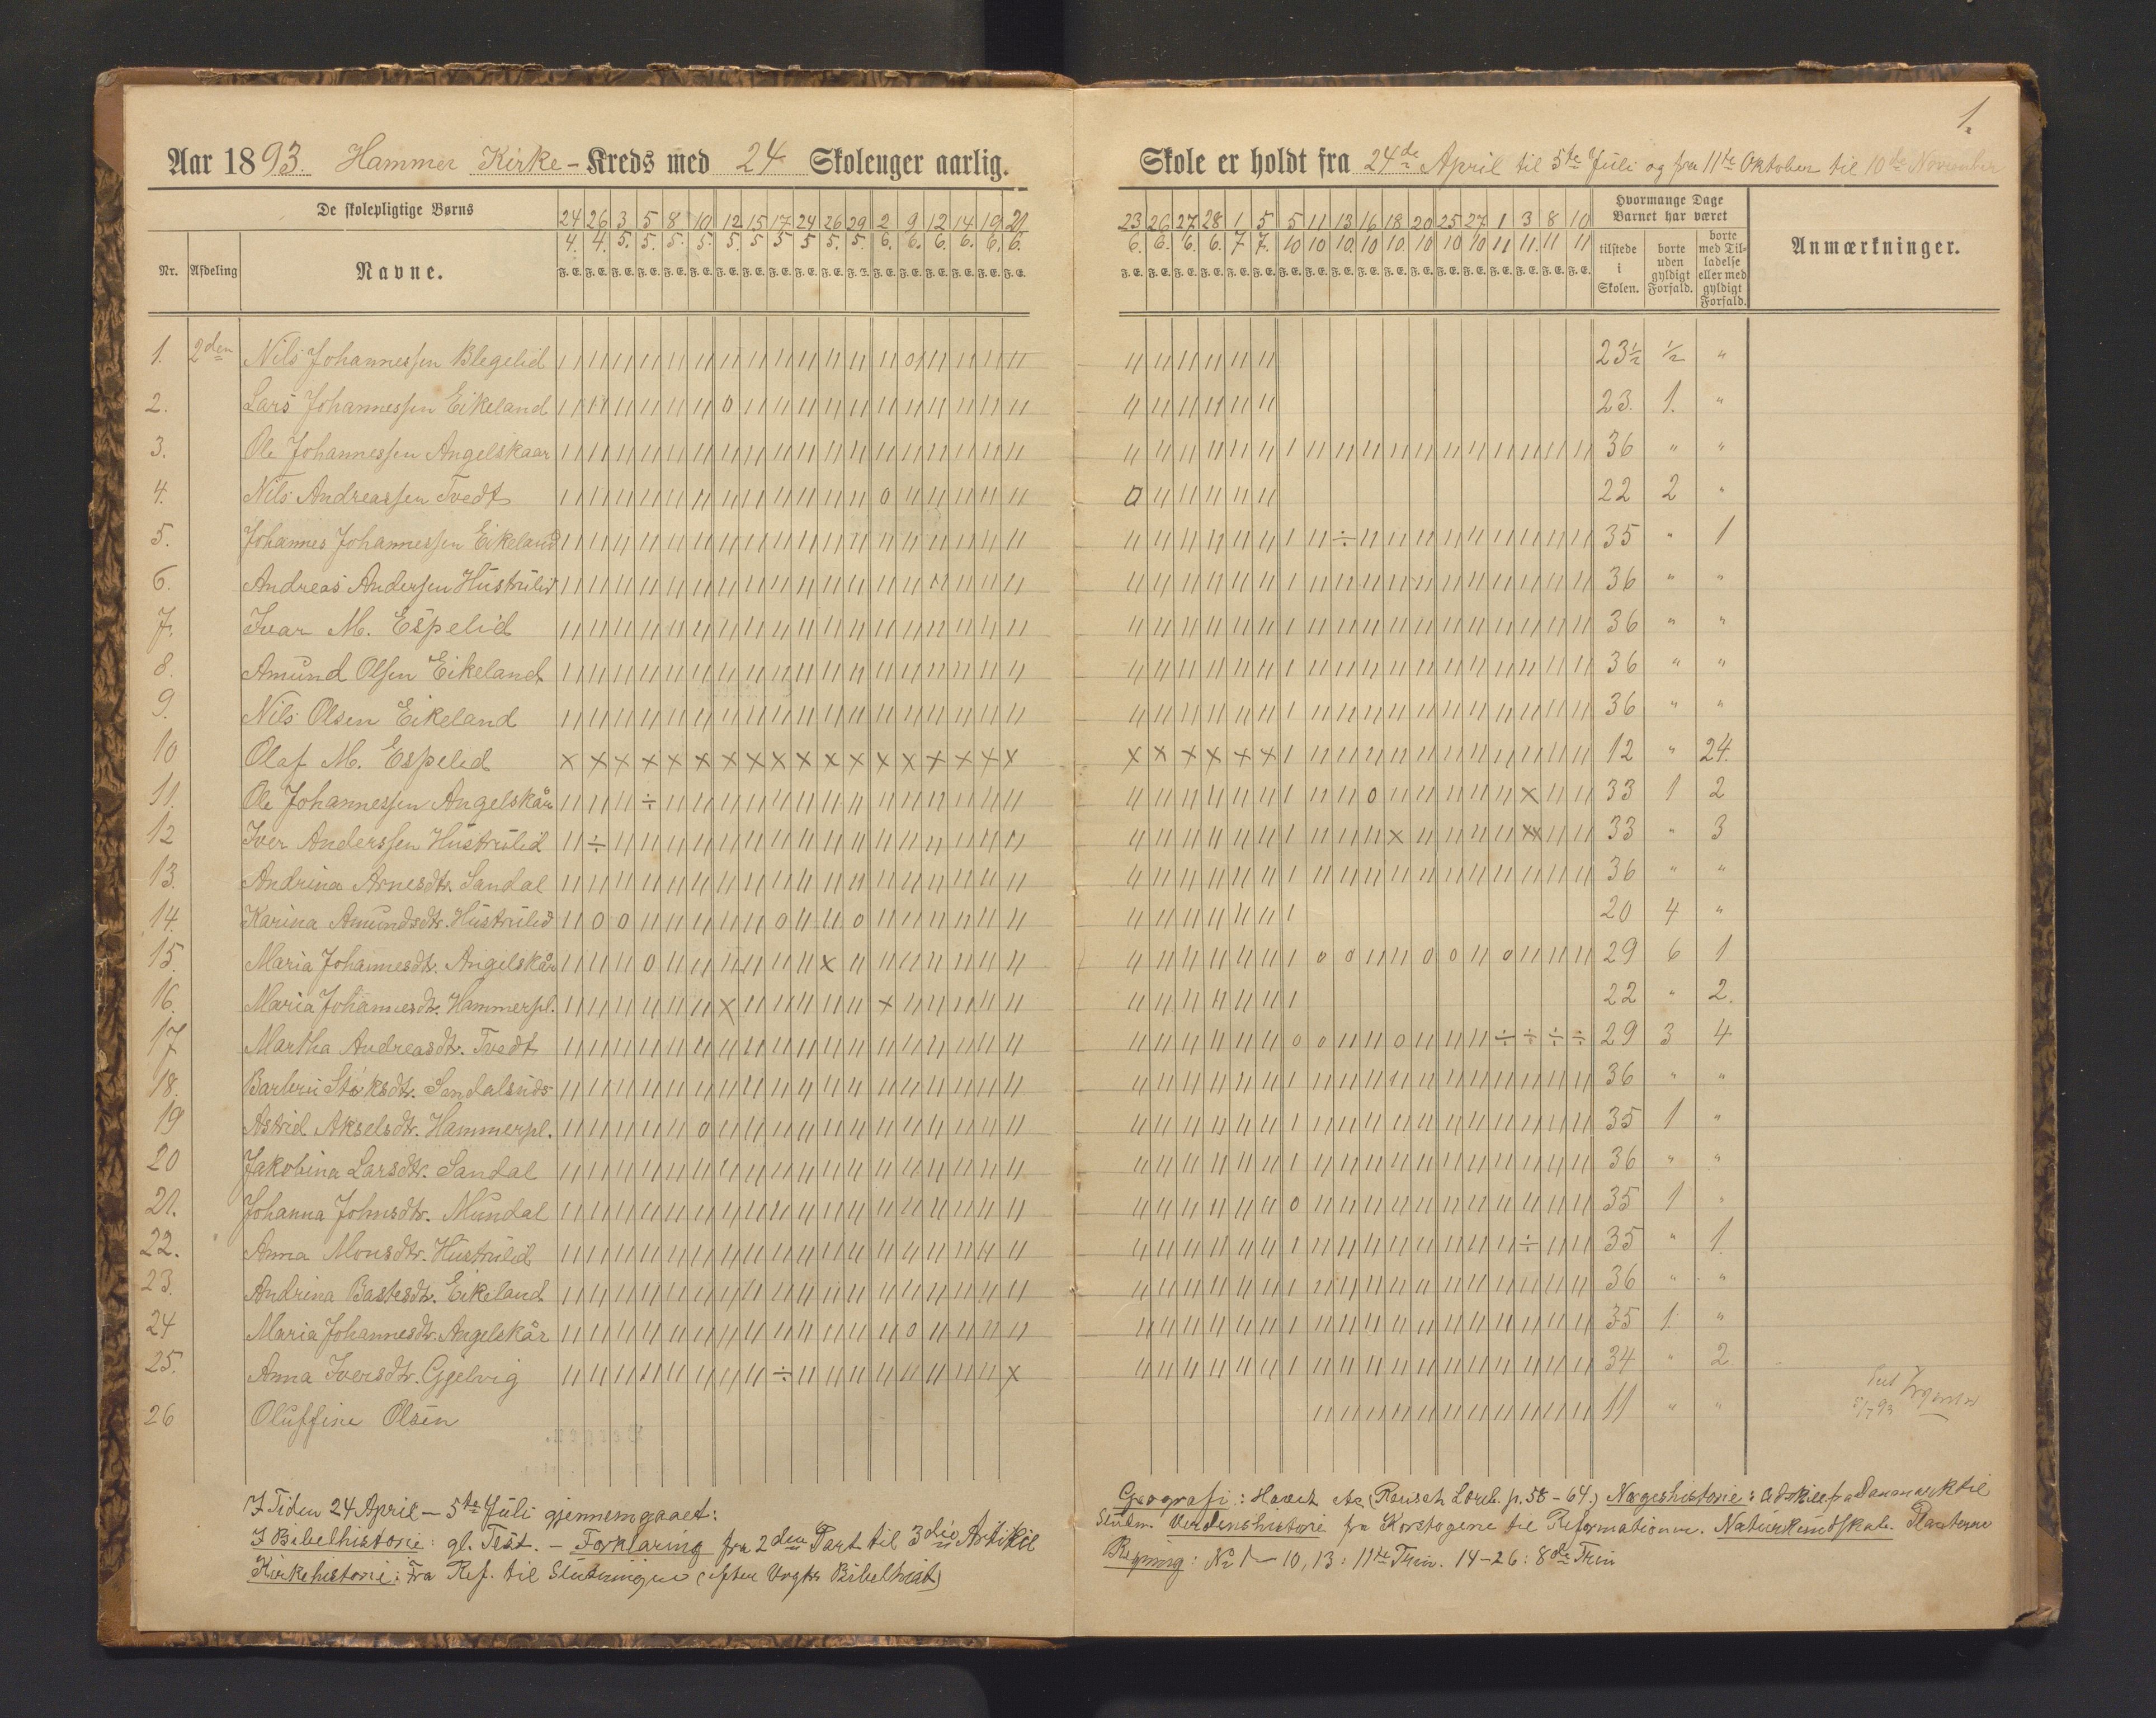 1.
Aar 1893. Hammer Kirke - Kreds med 24 Skolenger aarlig.
Skole er holdt fra 24de April til 5te Juli og fra 11te Oktober til 10de November
De skolepligtige Børns
Hvormange Dage Barnet har været
24 26 3 5 8 10 12 15 17 24 26 29 2 9 12 14 19 20
4. 4. 5. 5. 5. 5. 5. 5 5 5 5. 5. 6. 6. 6. 6. 6. 6.
23 26 27 28 1 5 5 11 13 16 18 20 25 27 1 3 8 10
6. 6. 6. 6. 7. 7. 10 10 10. 10 10. 10 10 10 11 11. 11 11
Nr. Afdeling Navne.
F. E. F. E. F. E. F. E. F. E. F. E. F. E. F. E. F. E. F. E. F. E. F. E. F. E. F. E. F. E. F. E. F. E. F. E.
F. E. F. E. F. E. F. E. F. E. F. E. F. E. F. E. F. E. F. E. F. E. F. E. F. E. F. E. F. E. F. E. F. E. F. E.
tilstede i Skolen.
borte uden gyldigt Forfald.
borte med Tilladelse eller med gyldigt Forfald.
Anmærkninger.
1. 2den Nils Johannessen Blegelid 23½ ½ "
2. Lars Johannessen Eikeland 23. 1. "
3. Ole Johannessen Angelskaar 36 " "
4. Nils Andreassen Tvedt 22 2 "
5. Johannes Johannessen Eikeland 35 " 1
6. Andreas Andersen Hustrulid 36 " "
7. Ivar M. Espelid 36 " "
8. Amund Olsen Eikeland 36 " "
9. Nils Olsen Eikeland 36 " "
10 Olaf M. Espelid 12 " 24.
11. Ole Johannessen Angelskår 33 1 2
12 Iver Anderssen Hustrulid 33 " 3
13. Andrina Arnesdtr. Sandal 36 " "
14. Karina Amundsdtr. Hustrulid 20 4 "
15. Maria Johannesdtr. Angelskår 29 6 1
16. Maria Johannesdtr. Hammerpl. 22 " 2.
17 Martha Andreasdtr. Tvedt 29 3 4
18. Barbru Størksdtr. Sandalsuds 36 " "
19 Astrid Akselsdtr. Hammerpl. 35 1 "
20 Jakobina Larsdtr. Sandal 36 " "
21. Johanna Johnsdtr. Mundal 35 1 "
22. Anna Monsdtr. Hustrulid 35 " 1.
23. Andrina Bastesdtr. Eikeland 36 " "
24 Maria Johannesdtr. Angelskår 35 1. "
25. Anna Iversdtr. Gjelvig 34 " 2
26 Oluffine Olsen 11 " "
5/7 93
I Tiden 24 April – 5te Juli gjennemgaaet:
I Bibelhistorie: gl. Test. – Forklaring fra 2den Part til 3die Artikel
Kirkehistorie: Fra Ref. til Slutningen (efter Vogts Bibelhist)
Geografi: Havet etc (Reusch Læreb. p. 58–64.) Norgeshistorie: Adskill. fra Danmark til
Slutn. Verdenshistorie fra Korstogene til Reformationen. Naturkundskab. Planterne
Regning: No 1–10, 13: 11te Trin. 14–26: 8de Trin